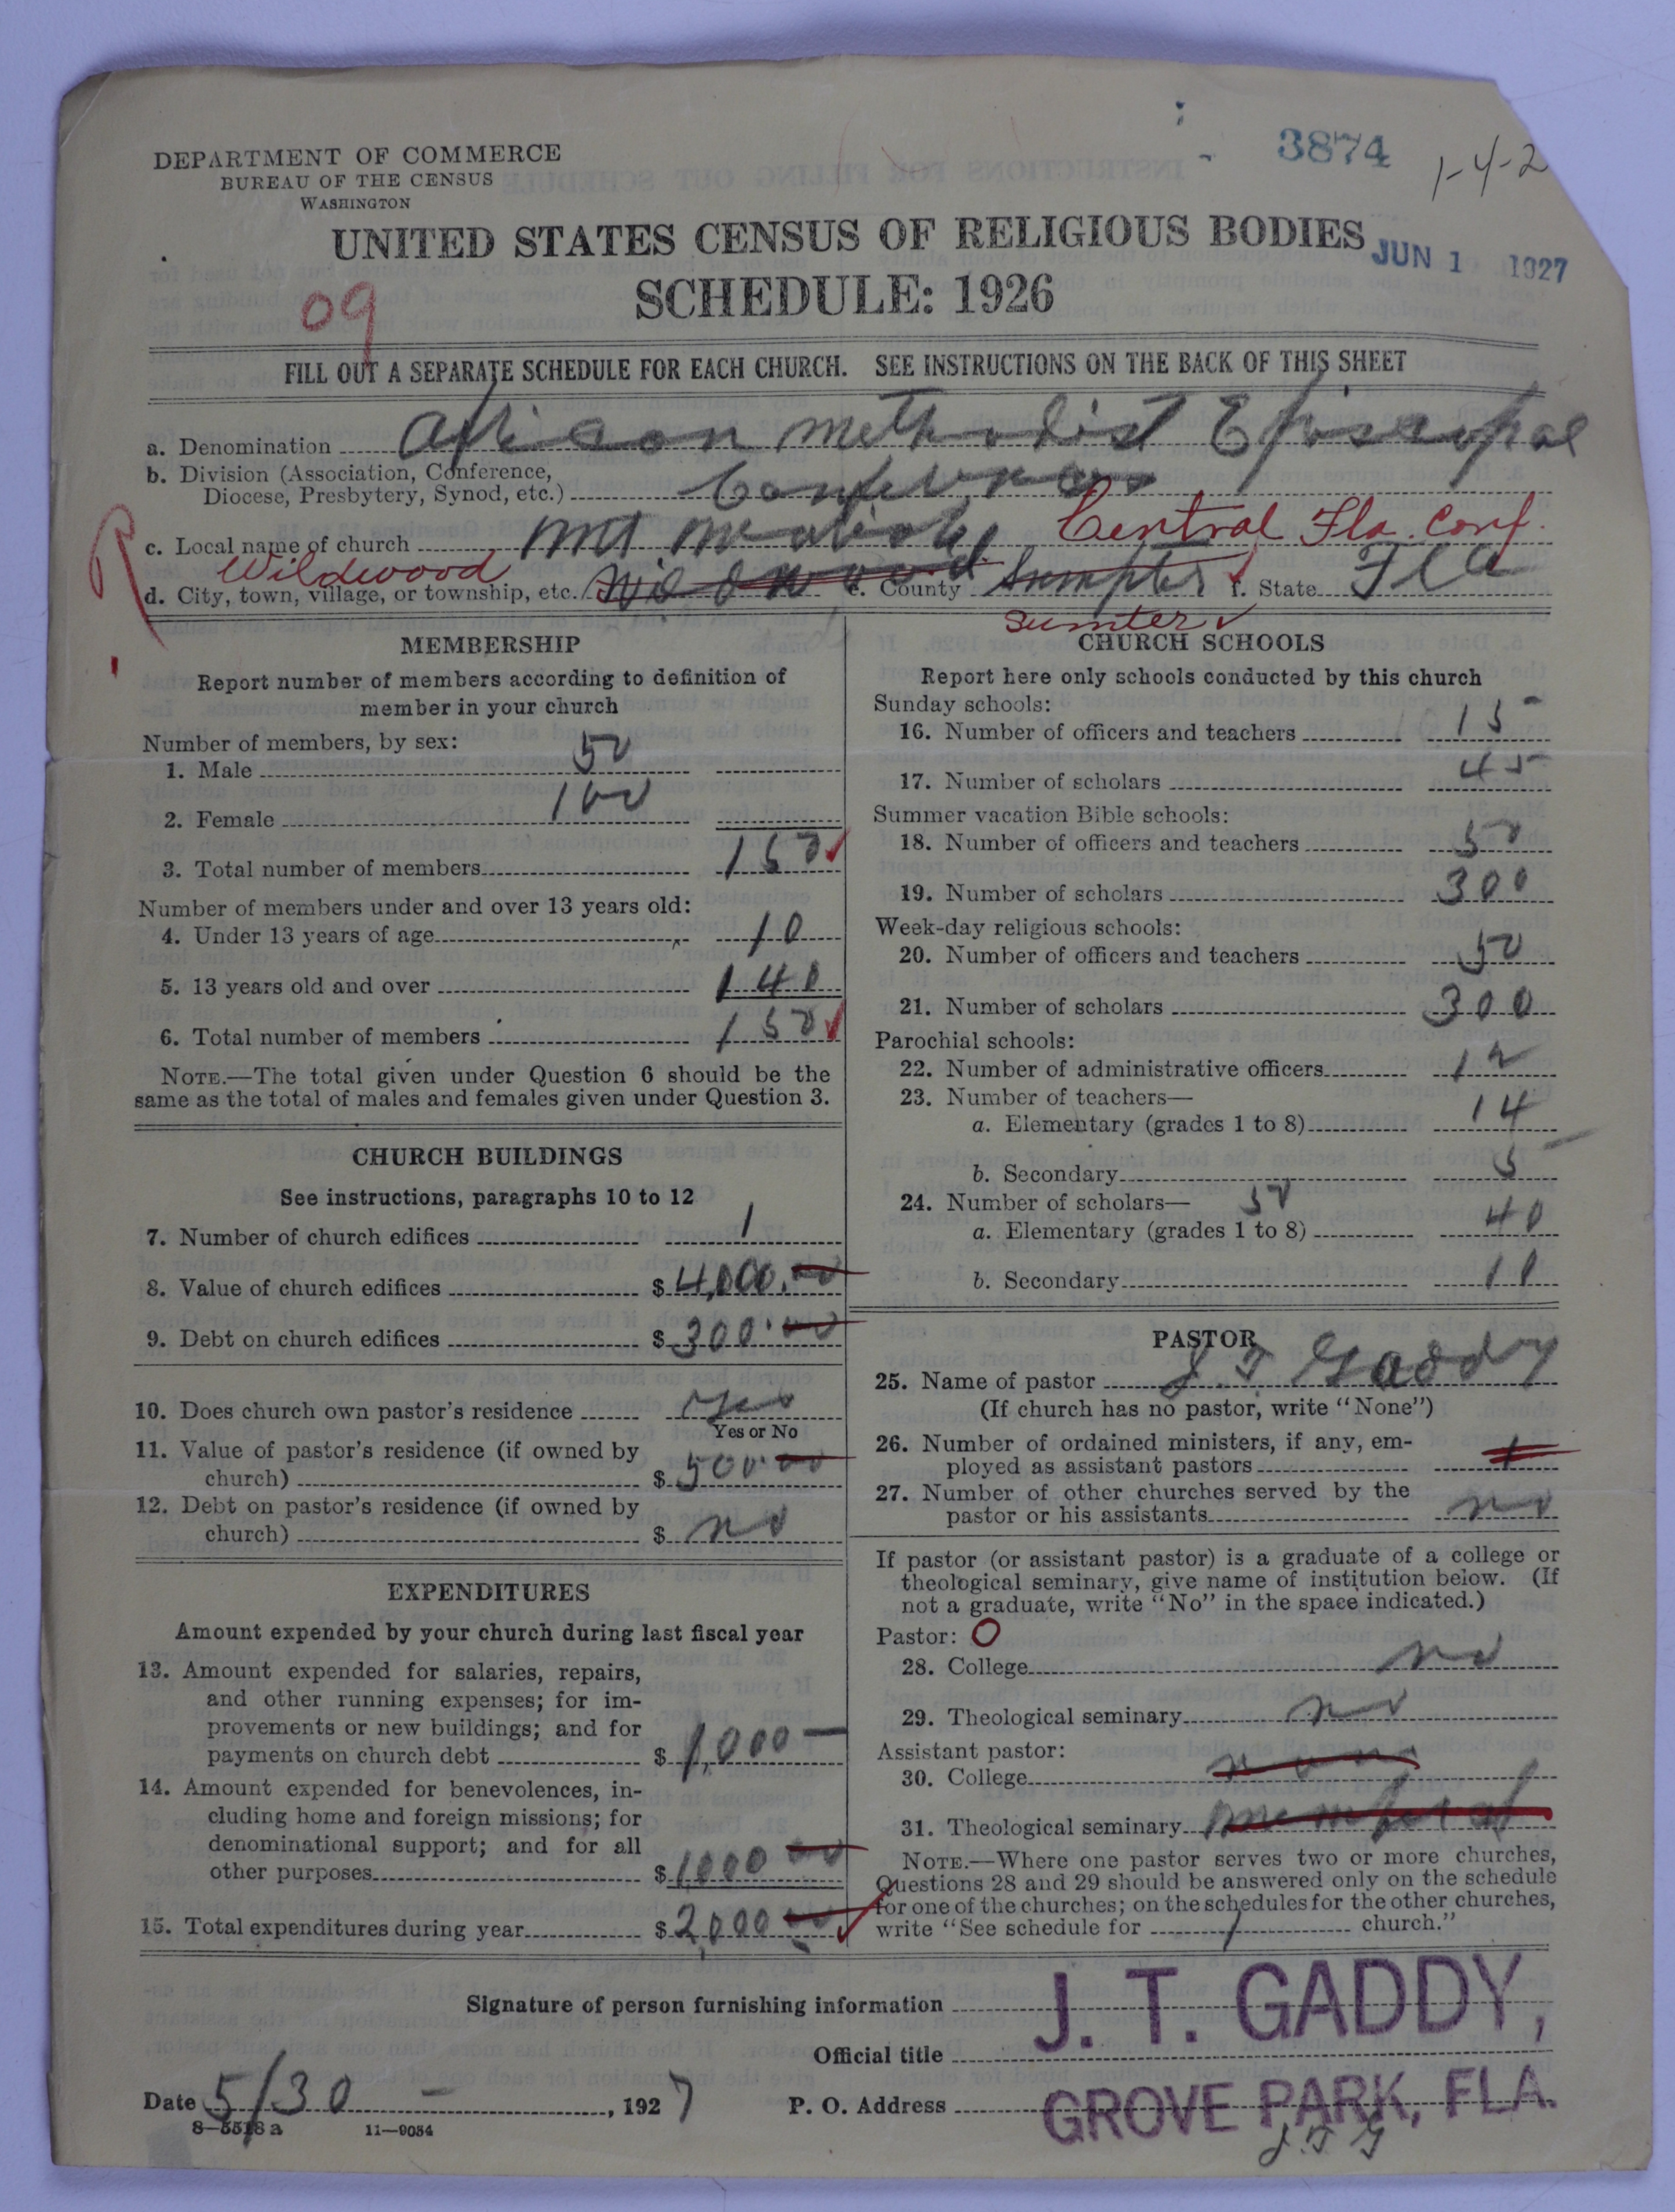 3874
1-4-2
DEPARTMENT OF COMMERCE
BUREAU OF THE CENSUS
WASHINGTON
UNITED STATES CENSUS OF RELIGIOUS BODIES
JUN 1 1927
SCHEDULE: 1926
09
FILL OUT A SEPARATE SCHEDULE FOR EACH CHURCH. SEE INSTRUCTIONS ON THE BACK OF THIS SHEET
a. Denomination African Methodist Episcopal
b. Division (Association, Conference,
Diocese, Presbytery, Synod, etc.) Conference
c. Local name of church Mt Central Fla. Conf.
Wildwood
d. City, town, village, or township, etc. Wildwood e. County Sumpter f. State Fla
Sumter
MEMBERSHIP
Report number of members according to definition of
member in your church
Number of members, by sex:
1. Male 50
2. Female 100
3. Total number of members 150
Number of members under and over 13 years old:
4. Under 13 years of age 10
5. 13 years old and over 140
6. Total number of members 150
NOTE.—The total given under Question 6 should be the
same as the total of males and females given under Question 3.
CHURCH BUILDINGS
See instructions, paragraphs 10 to 12
7. Number of church edifices 1
8. Value of church edifices $ 4,000.00
9. Debt on church edifices $ 300.00
10. Does church own pastor's residence Yes
Yes or No
11. Value of pastor's residence (if owned by
church) $ 500.00
12. Debt on pastor's residence (if owned by
church) $ no
EXPENDITURES
Amount expended by your church during last fiscal year
13. Amount expended for salaries, repairs,
and other running expenses; for im-
provements or new buildings; and for
payments on church debt $ 1,000 —
14. Amount expended for benevolences, in-
cluding home and foreign missions; for
denominational support; and for all
other purposes $ 1000 00
15. Total expenditures during year $ 2,000 00
CHURCH SCHOOLS
Report here only schools conducted by this church
Sunday schools:
16. Number of officers and teachers 15
17. Number of scholars 45
Summer vacation Bible schools:
18. Number of officers and teachers 50
19. Number of scholars 300
Week-day religious schools:
20. Number of officers and teachers 50
21. Number of scholars 300
Parochial schools:
22. Number of administrative officers 12
23. Number of teachers—
a. Elementary (grades 1 to 8) 14
b. Secondary 5
24. Number of scholars— 50
a. Elementary (grades 1 to 8) 40
b. Secondary 10
PASTOR
25. Name of pastor J. T. Gaddy
(If church has no pastor, write "None")
26. Number of ordained ministers, if any, em-
ployed as assistant pastors
27. Number of other churches served by the
pastor or his assistants no
If pastor (or assistant pastor) is a graduate of a college or
theological seminary, give name of institution below. (If
not a graduate, write "No" in the space indicated.)
Pastor: O
28. College no
29. Theological seminary no
Assistant pastor:
30. College
31. Theological seminary
NOTE.—Where one pastor serves two or more churches,
Questions 28 and 29 should be answered only on the schedule
for one of the churches; on the schedules for the other churches,
write "See schedule for 1 church."
Signature of person furnishing information J. T. GADDY,
Official title
Date 5/30 — , 1927 P. O. Address GROVE PARK, FLA.
8—5518 a 11—9054
J. T. G